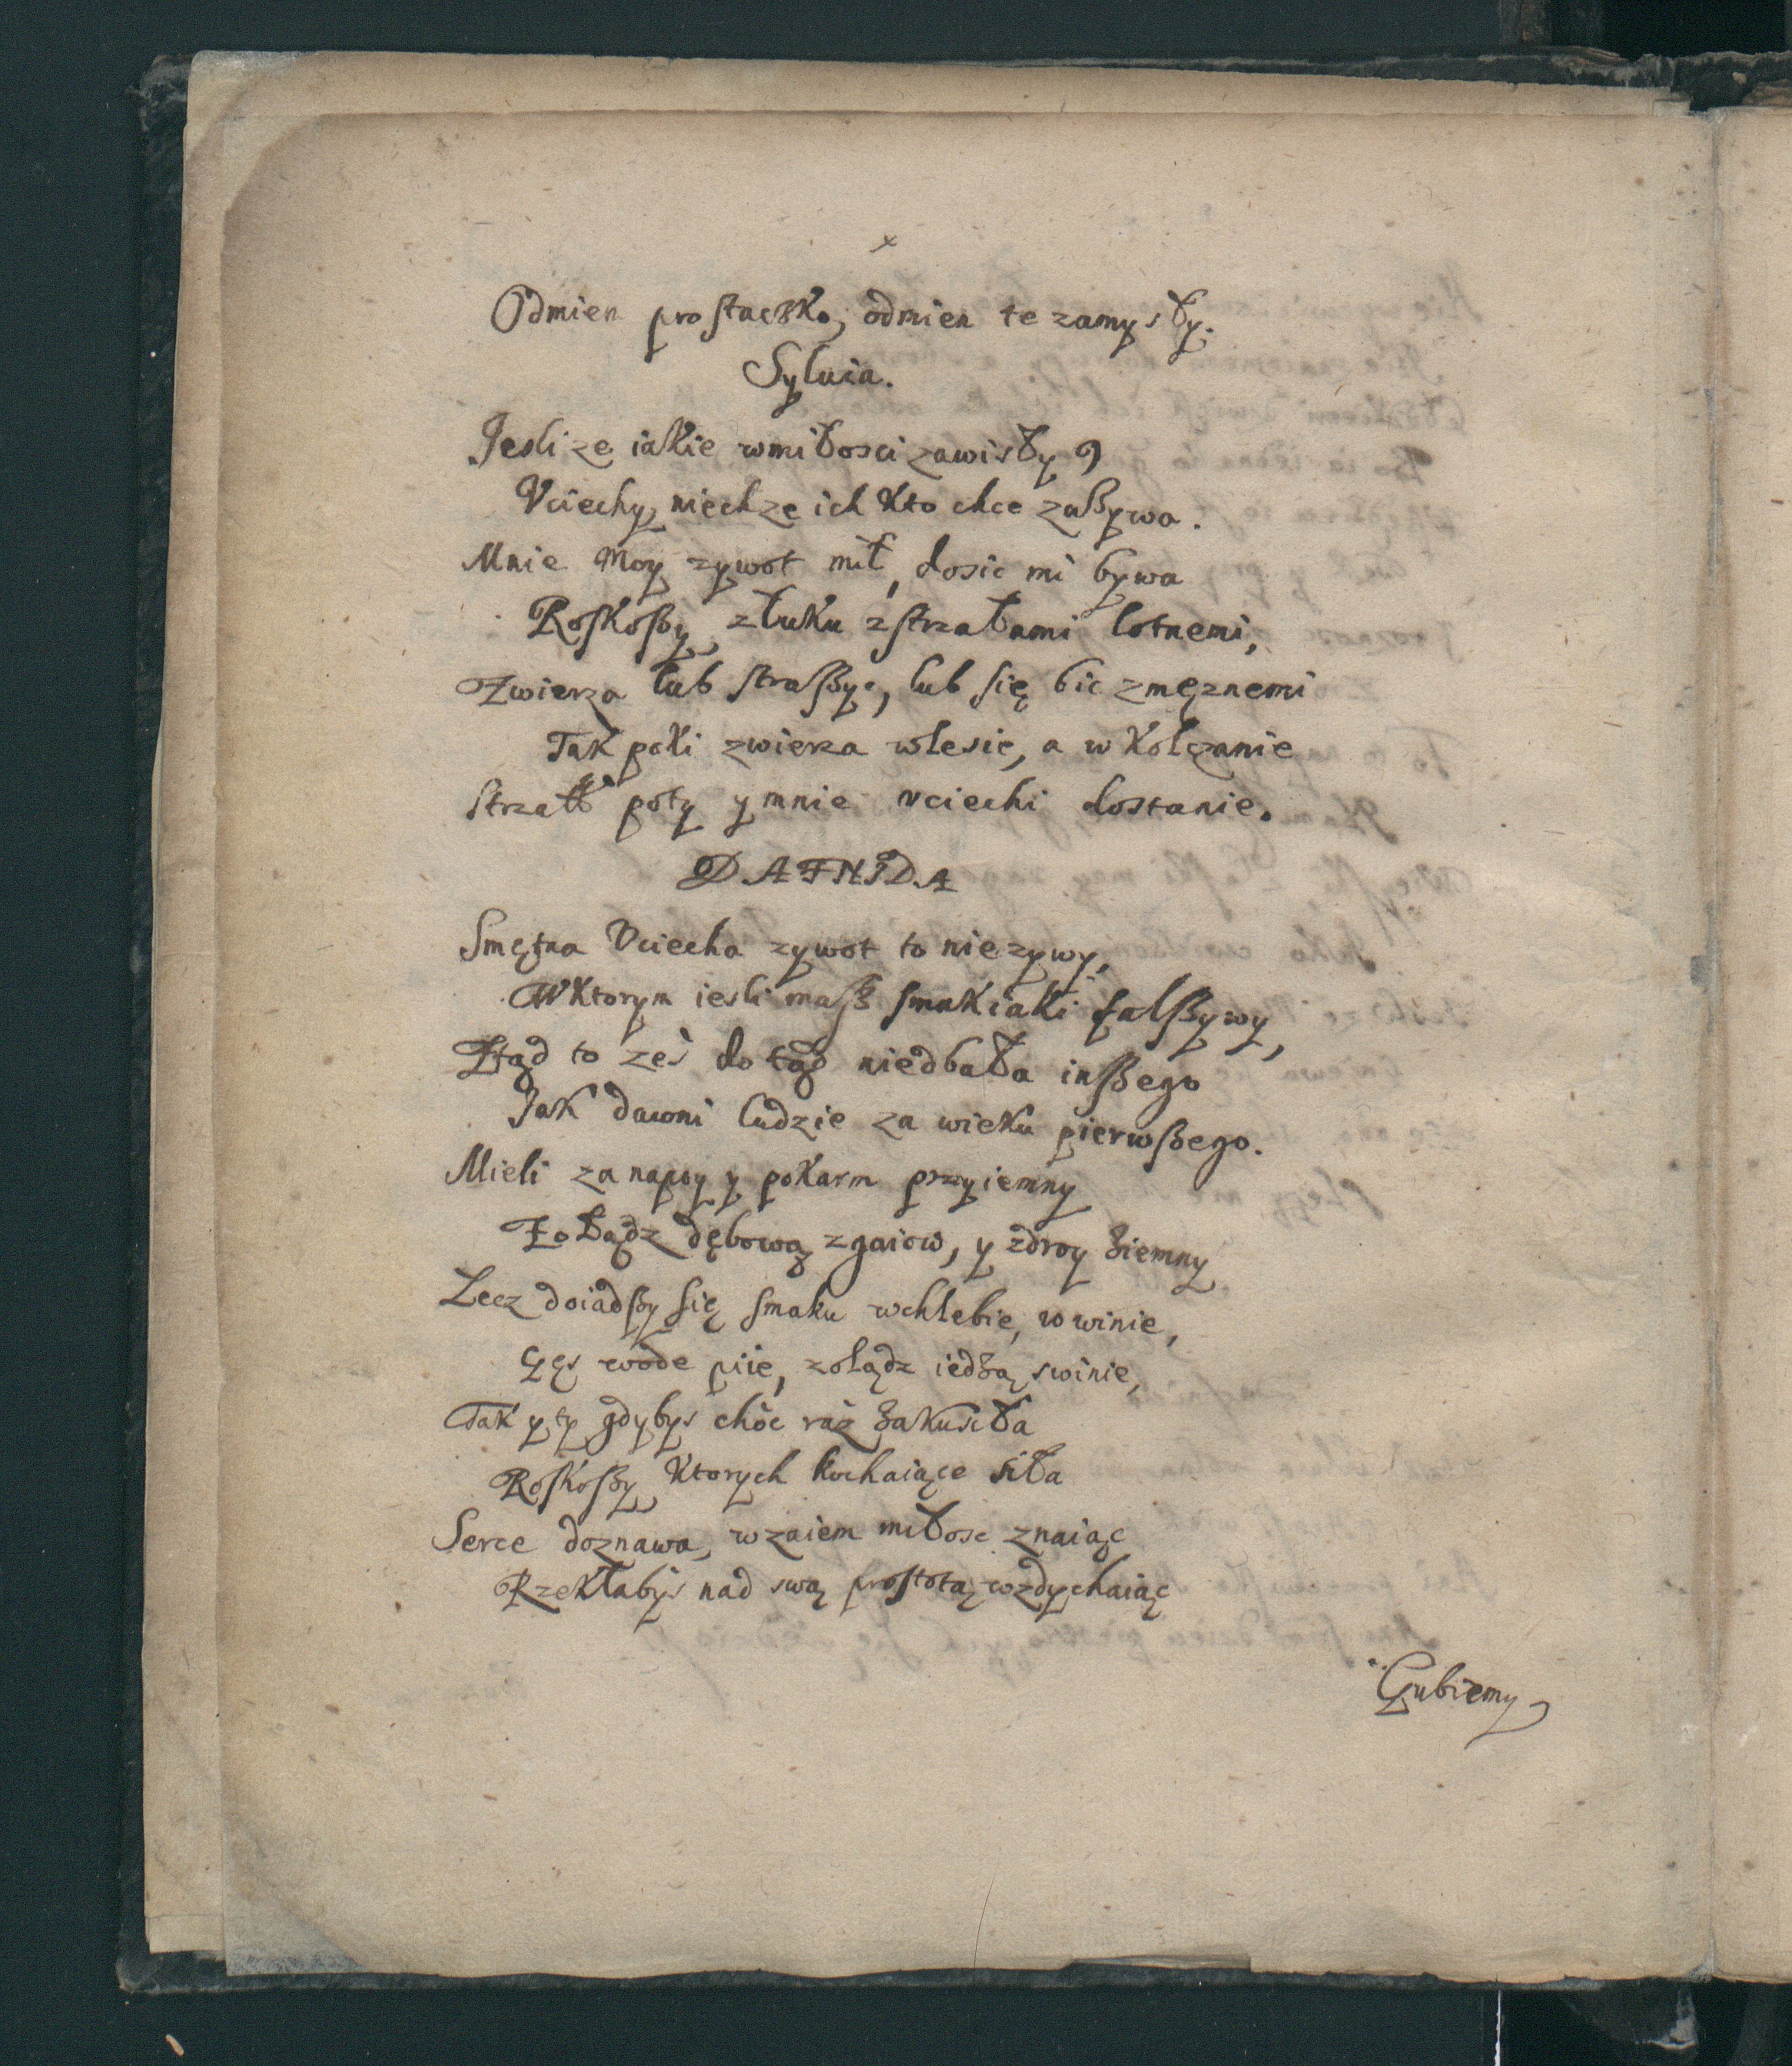 x
Odmien prostaczko, odmien te zamysły.
Syluia.
Jesli ze iakie wmiłosci zawisły,
Vciechy, niechze ich kto chce zaßywa.
Mnie moy zywot mił, dosic mi bywa
Roskoßy, złuku zstrzałami lotnemi,
Zwierza lub straßyc, lub się bic zmęznemi
Tak poki zwierza wlesie, a w kołczanie
Strzał poty y mnie vciechi dostanie.
DAFNIDA
Smętna Vciecha zywot to niezywy,
Wktorym iesli maß smak iaki falßywy,
Ztąd to ześ do tąd niedbała inßego
Jak dawni ludzie za wieku pierwßego.
Mieli za napoy y pokarm przyiemny
Zołądz dębową zgaiow, y zdroy ziemny
Lecz doiadßy się smaku wchlebie, w winie,
Gęs wode piie, zolądz iedzą swinie,
Tak y ty gdybys choc raz zakusiła
Roskoßy ktorych kochaiące siła
Serce doznawa, wzaiem miłosc znaiąc
Rzekłabys nad swą prostotą wzdychaiąc
Gubiemy